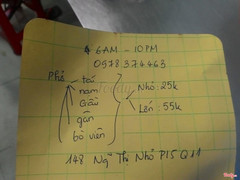 6AM - 10PM
0978374463
Phở
tái
nạm
Gầu
gân
bò viên
Nhỏ: 25k
Lớn: 55k
148 Ng Thị Nhỏ P15 Q11